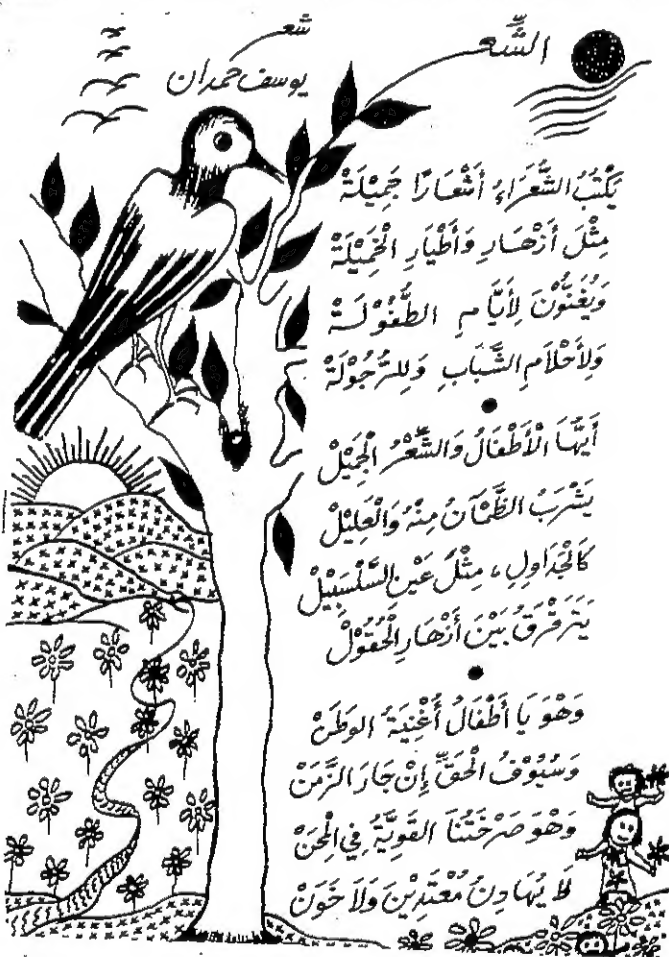 الشِّعر
شعر
يوسف حمدان
يَكْتُبُ الشُّعَرَاءُ أَشْعَارًا جَمِيْلَةْ
مِثْلَ أَزْهَارِ وَأَطْيَارِ الْخَمِيْلَةْ
وَيُغَنُّوْنَ لِأَيَّامِ الطُّفُوْلَةْ
وَلِأَحْلَامِ الشَّبَابِ وَلِلرُّجُوْلَةْ
أَيُّهَا الْأَطْفَالُ وَالشِّعْرُ الْجَمِيْلْ
يَشْرَبُ الظَّمْآنُ مِنْهُ وَالْعَلِيْلْ
كَالْجَدَاوِلِ، مِثْلَ عَيْنِ السَّلْسَبِيْلْ
يَتَرَقْرَقُ بَيْنَ أَزْهَارِ الْحُقُوْلْ
وَهْوَ يَا أَطْفَالُ أُغْنِيَةُ الوَطَنْ
وَسُيُوْفُ الْحَقِّ إِنْ جَارَ الزَّمَنْ
وَهْوَ صَرْخَتُنَا القَوِيَّةُ فِي الْمِحَنْ
لَا يُهَادِنُ مُعْتَدِيْنَ وَلَا خَوَنْ